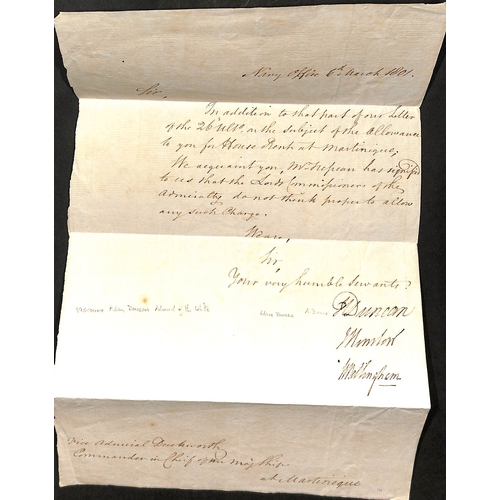 Navy Office 6th March 1801.
Sir,
In addition to that part of our Letter
of the 26 Ulto, on the subject of the Allowance
to you for House Rent at Martinique;
We acquaint you, Mr Nepean has signified
to us that the Lords Commissioners of the
Admiralty do not think proper to allow
any such Charge.
We are,
Sir
Your very humble Servants
Duncan
Admiral of the White
Vice Admiral Duckworth
Commander in Chief of Majs Ships
at Martinique